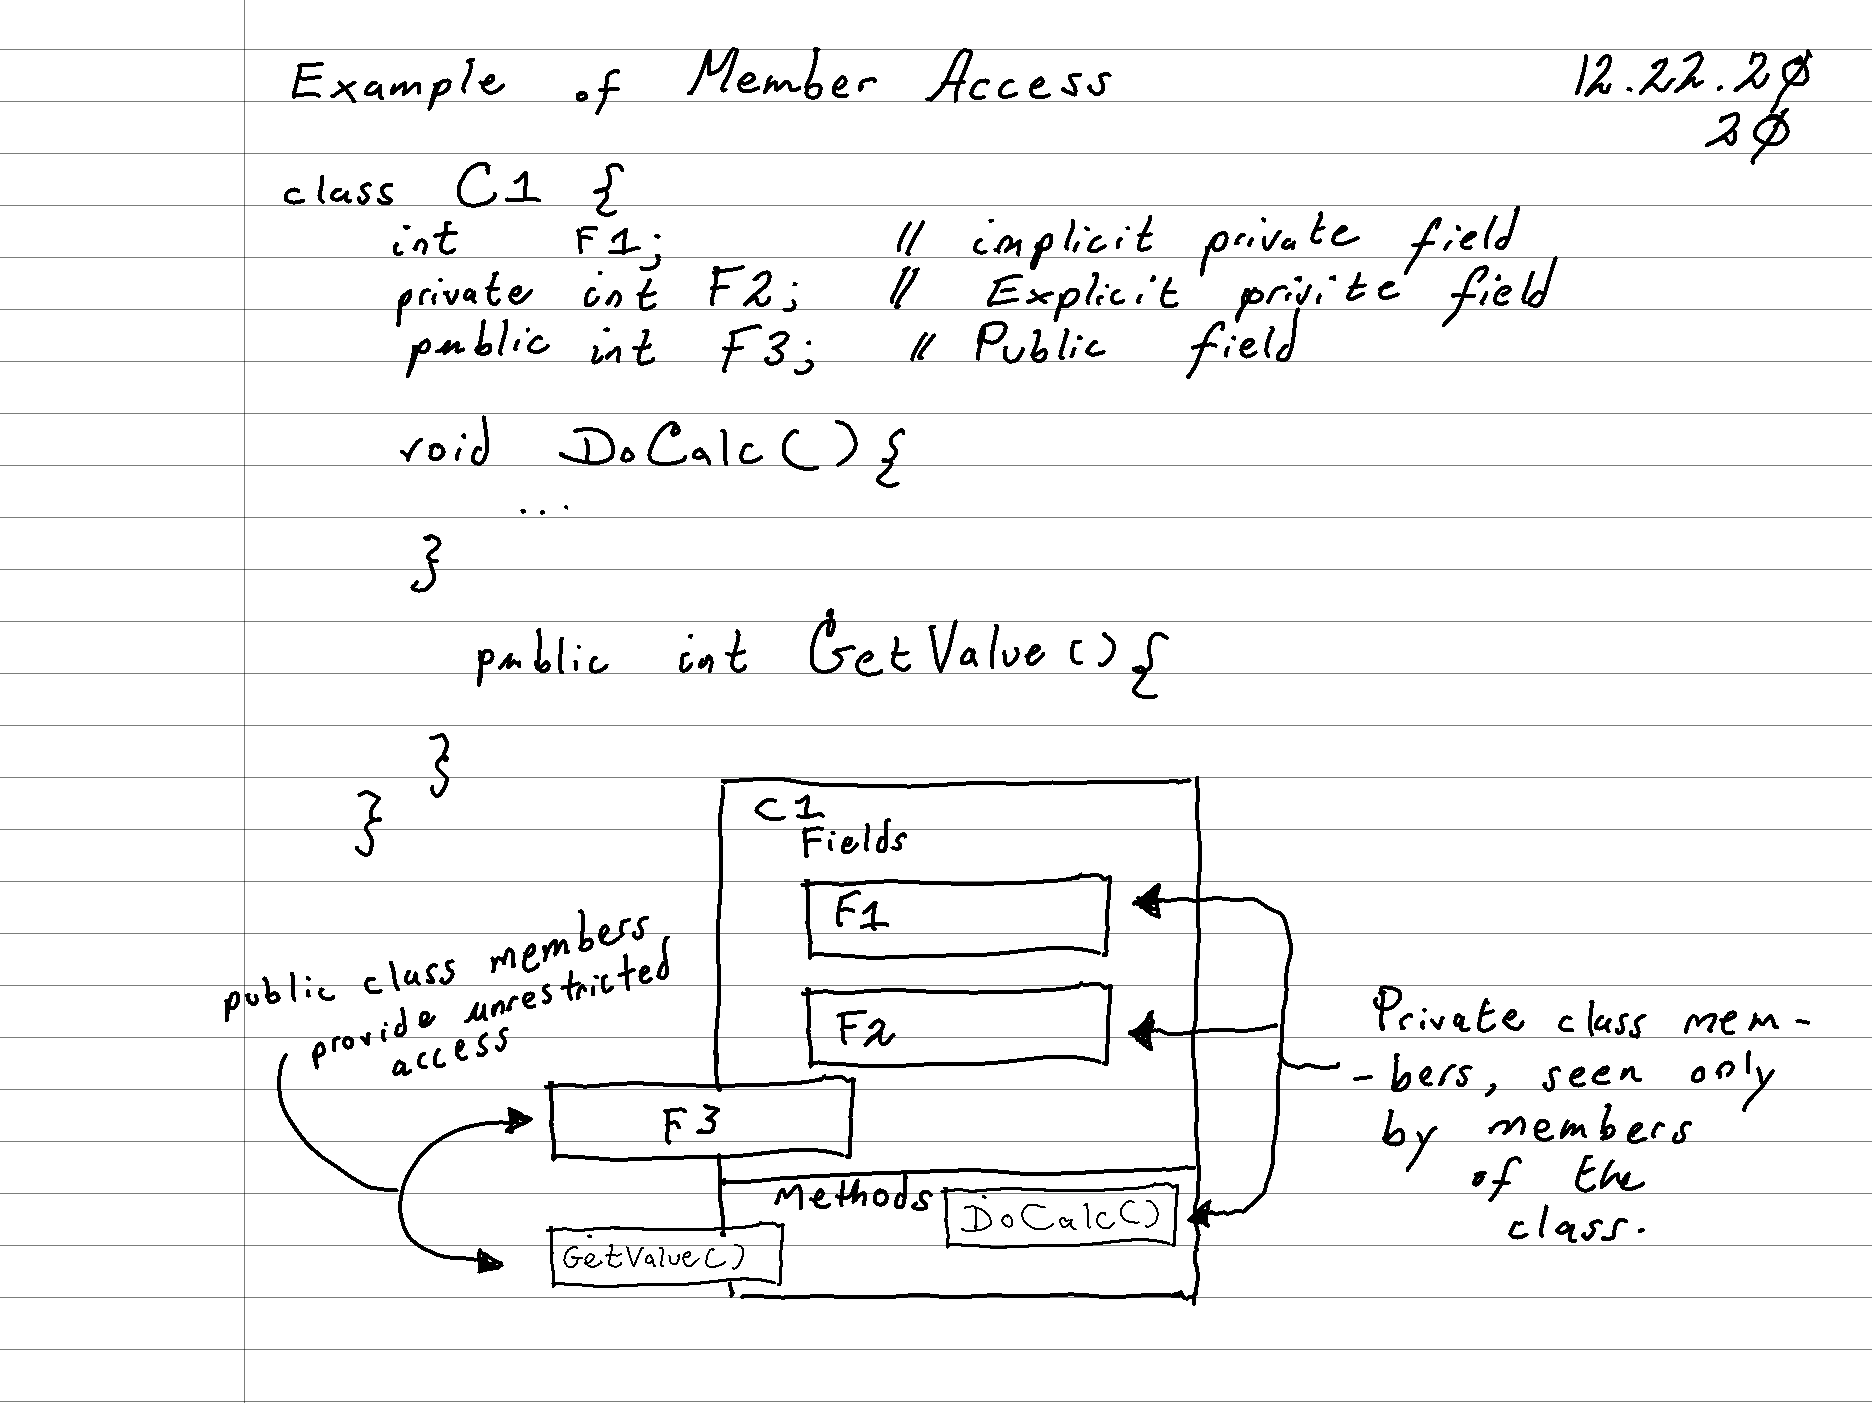 Example of Member Access 12.22.20
20
class C1 {
int F1; // implicit private field
private int F2; // Explicit privite field
public int F3; // Public field
void DoCalc() {
...
}
public int GetValue() {
}
}
C1
Fields
F1
F2
F3
Methods
DoCalc()
GetValue()
public class members
provide unrestricted
access
Private class mem-
-bers, seen only
by members
of the
class.